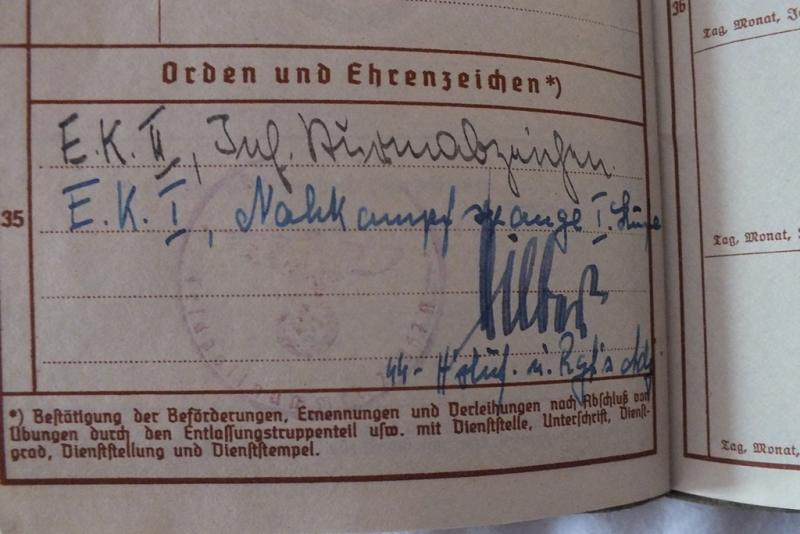 36
Tag, Monat,
Orden und Ehrenzeichen*)
E.K. II, Inf. Sturmabzeichen.
35
E.K. I, Nahkampfspange I. Stufe
Tag, Monat,
SS-H'stuf. u. Rgt's Adj.
*) Bestätigung der Beförderungen, Ernennungen und Verleihungen nach Abschluß von
Übungen durch den Entlassungstruppenteil usw. mit Dienststelle, Unterschrift, Dienst-
grad, Dienststellung und Dienststempel.
Tag, Monat,